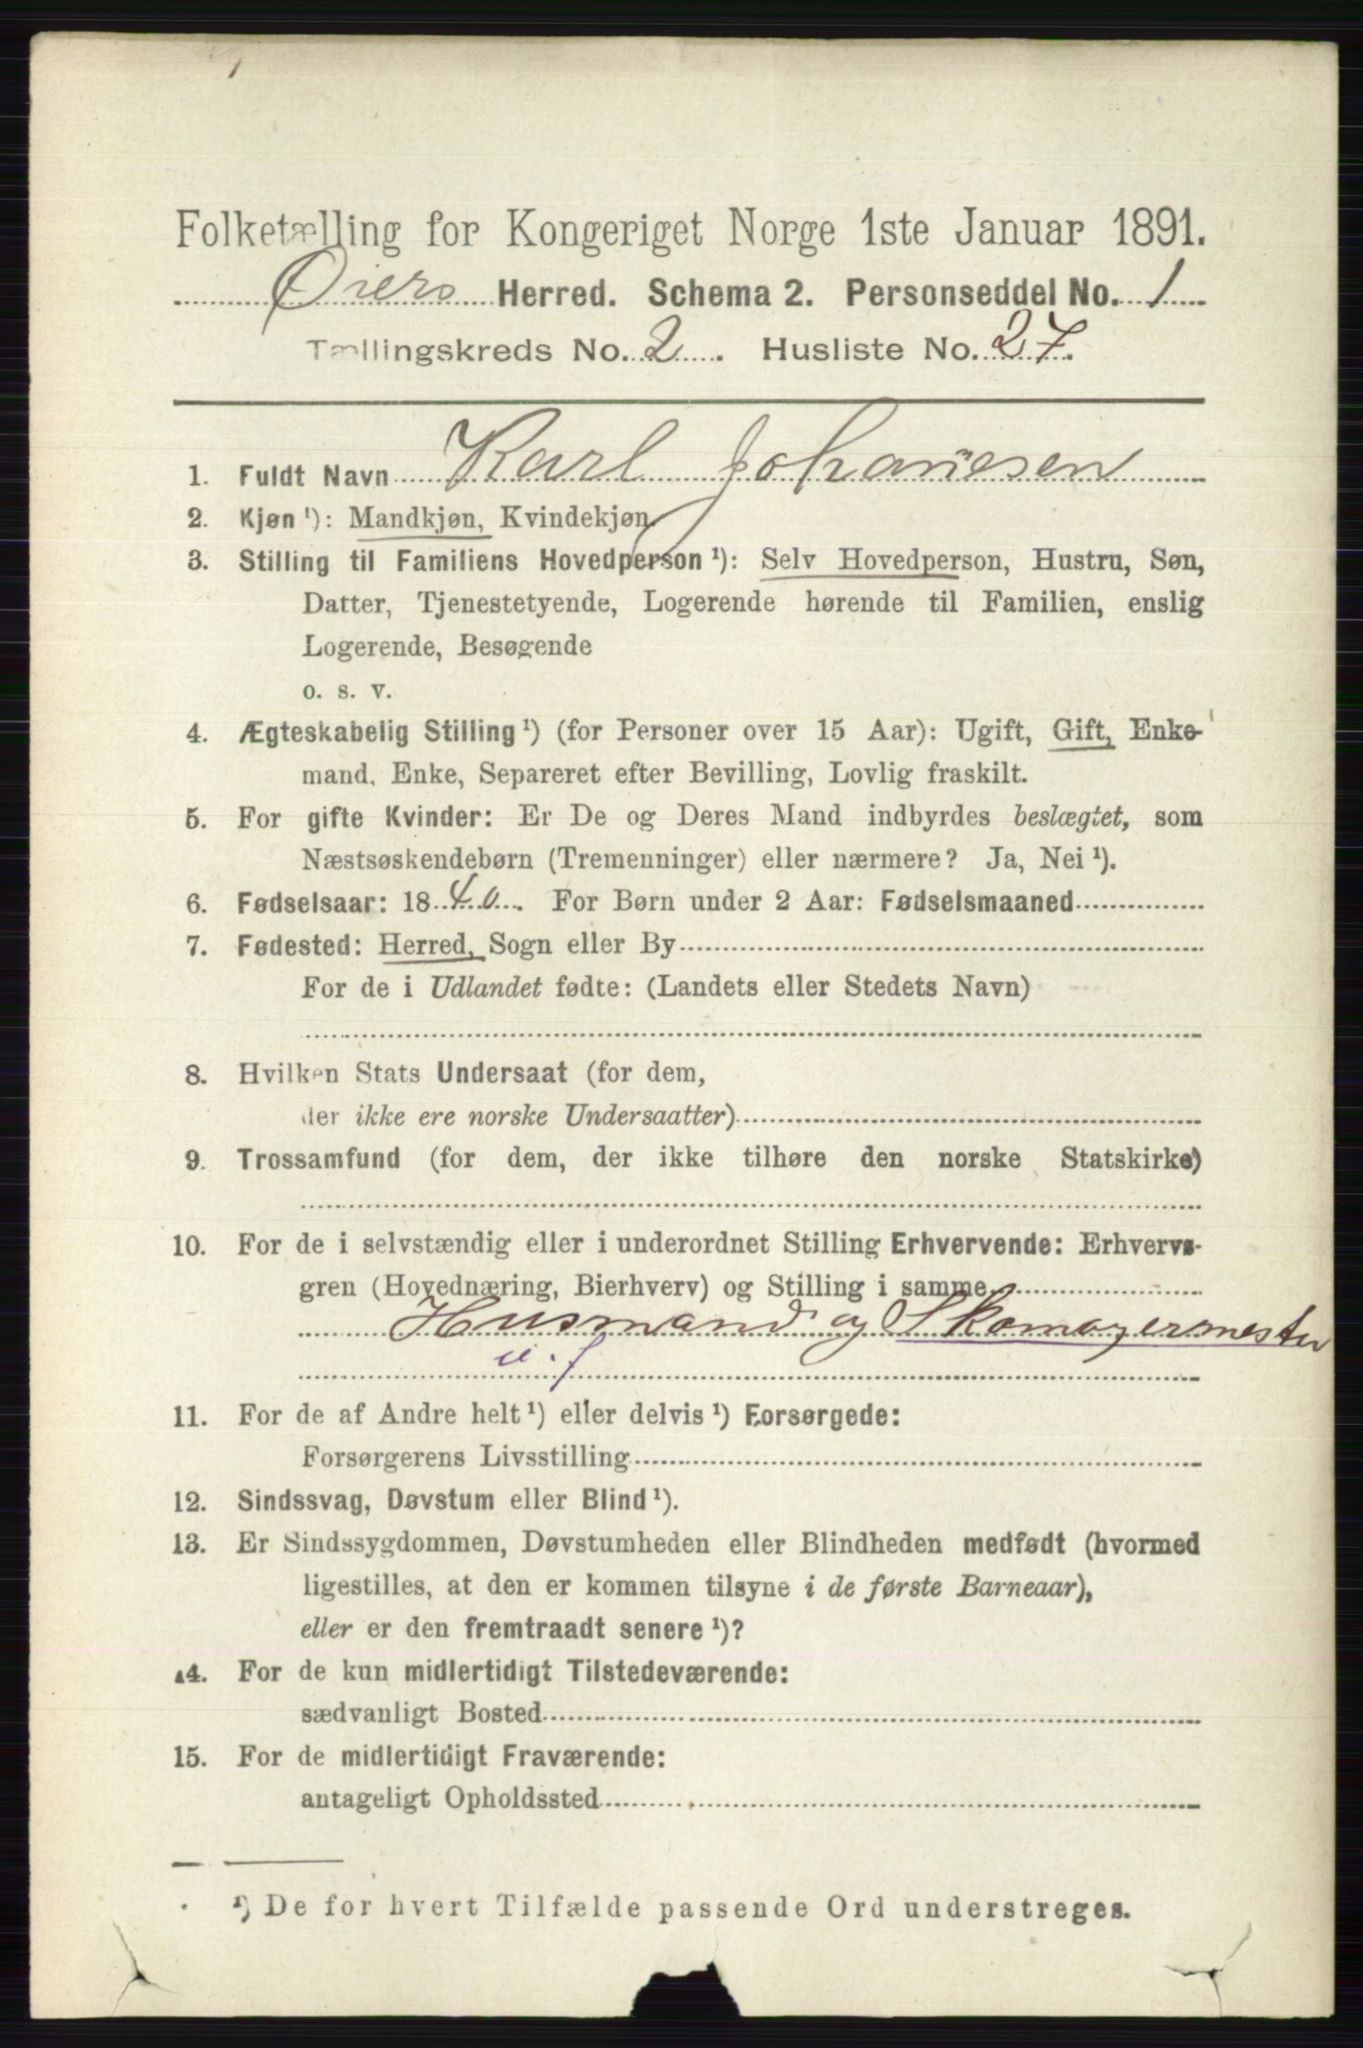 Folketælling for Kongeriget Norge 1ste Januar 1891.
Øiers Herred. Schema 2. Personseddel No. 1
Tællingskreds No. 2. Husliste No. 27.
1. Fuldt Navn Karl Johannesen
2. Kjøn ¹): Mandkjøn, Kvindekjøn.
3. Stilling til Familiens Hovedperson ¹): Selv Hovedperson, Hustru, Søn,
Datter, Tjenestetyende, Logerende hørende til Familien, enslig
Logerende, Besøgende
o. s. v.
4. Ægteskabelig Stilling ¹) (for Personer over 15 Aar): Ugift, Gift, Enke-
mand, Enke, Separeret efter Bevilling, Lovlig fraskilt.
5. For gifte Kvinder: Er De og Deres Mand indbyrdes beslægtet, som
Næstsøskendebørn (Tremenninger) eller nærmere? Ja, Nei ¹).
6. Fødselsaar: 1840. For Børn under 2 Aar: Fødselsmaaned
7. Fødested: Herred, Sogn eller By
For de i Udlandet fødte: (Landets eller Stedets Navn)
8. Hvilken Stats Undersaat (for dem,
der ikke ere norske Undersaatter)
9. Trossamfund (for dem, der ikke tilhøre den norske Statskirke)
10. For de i selvstændig eller i underordnet Stilling Erhvervende: Erhvervs-
gren (Hovednæring, Bierhverv) og Stilling i samme
Husmand og Skomagermester
u. f
11. For de af Andre helt ¹) eller delvis ¹) Forsørgede:
Forsørgerens Livsstilling
12. Sindssvag, Døvstum eller Blind ¹).
13. Er Sindssygdommen, Døvstumheden eller Blindheden medfødt (hvormed
ligestilles, at den er kommen tilsyne i de første Barneaar),
eller er den fremtraadt senere ¹)?
14. For de kun midlertidigt Tilstedeværende:
sædvanligt Bosted
15. For de midlertidigt Fraværende:
antageligt Opholdssted
¹) De for hvert Tilfælde passende Ord understreges.